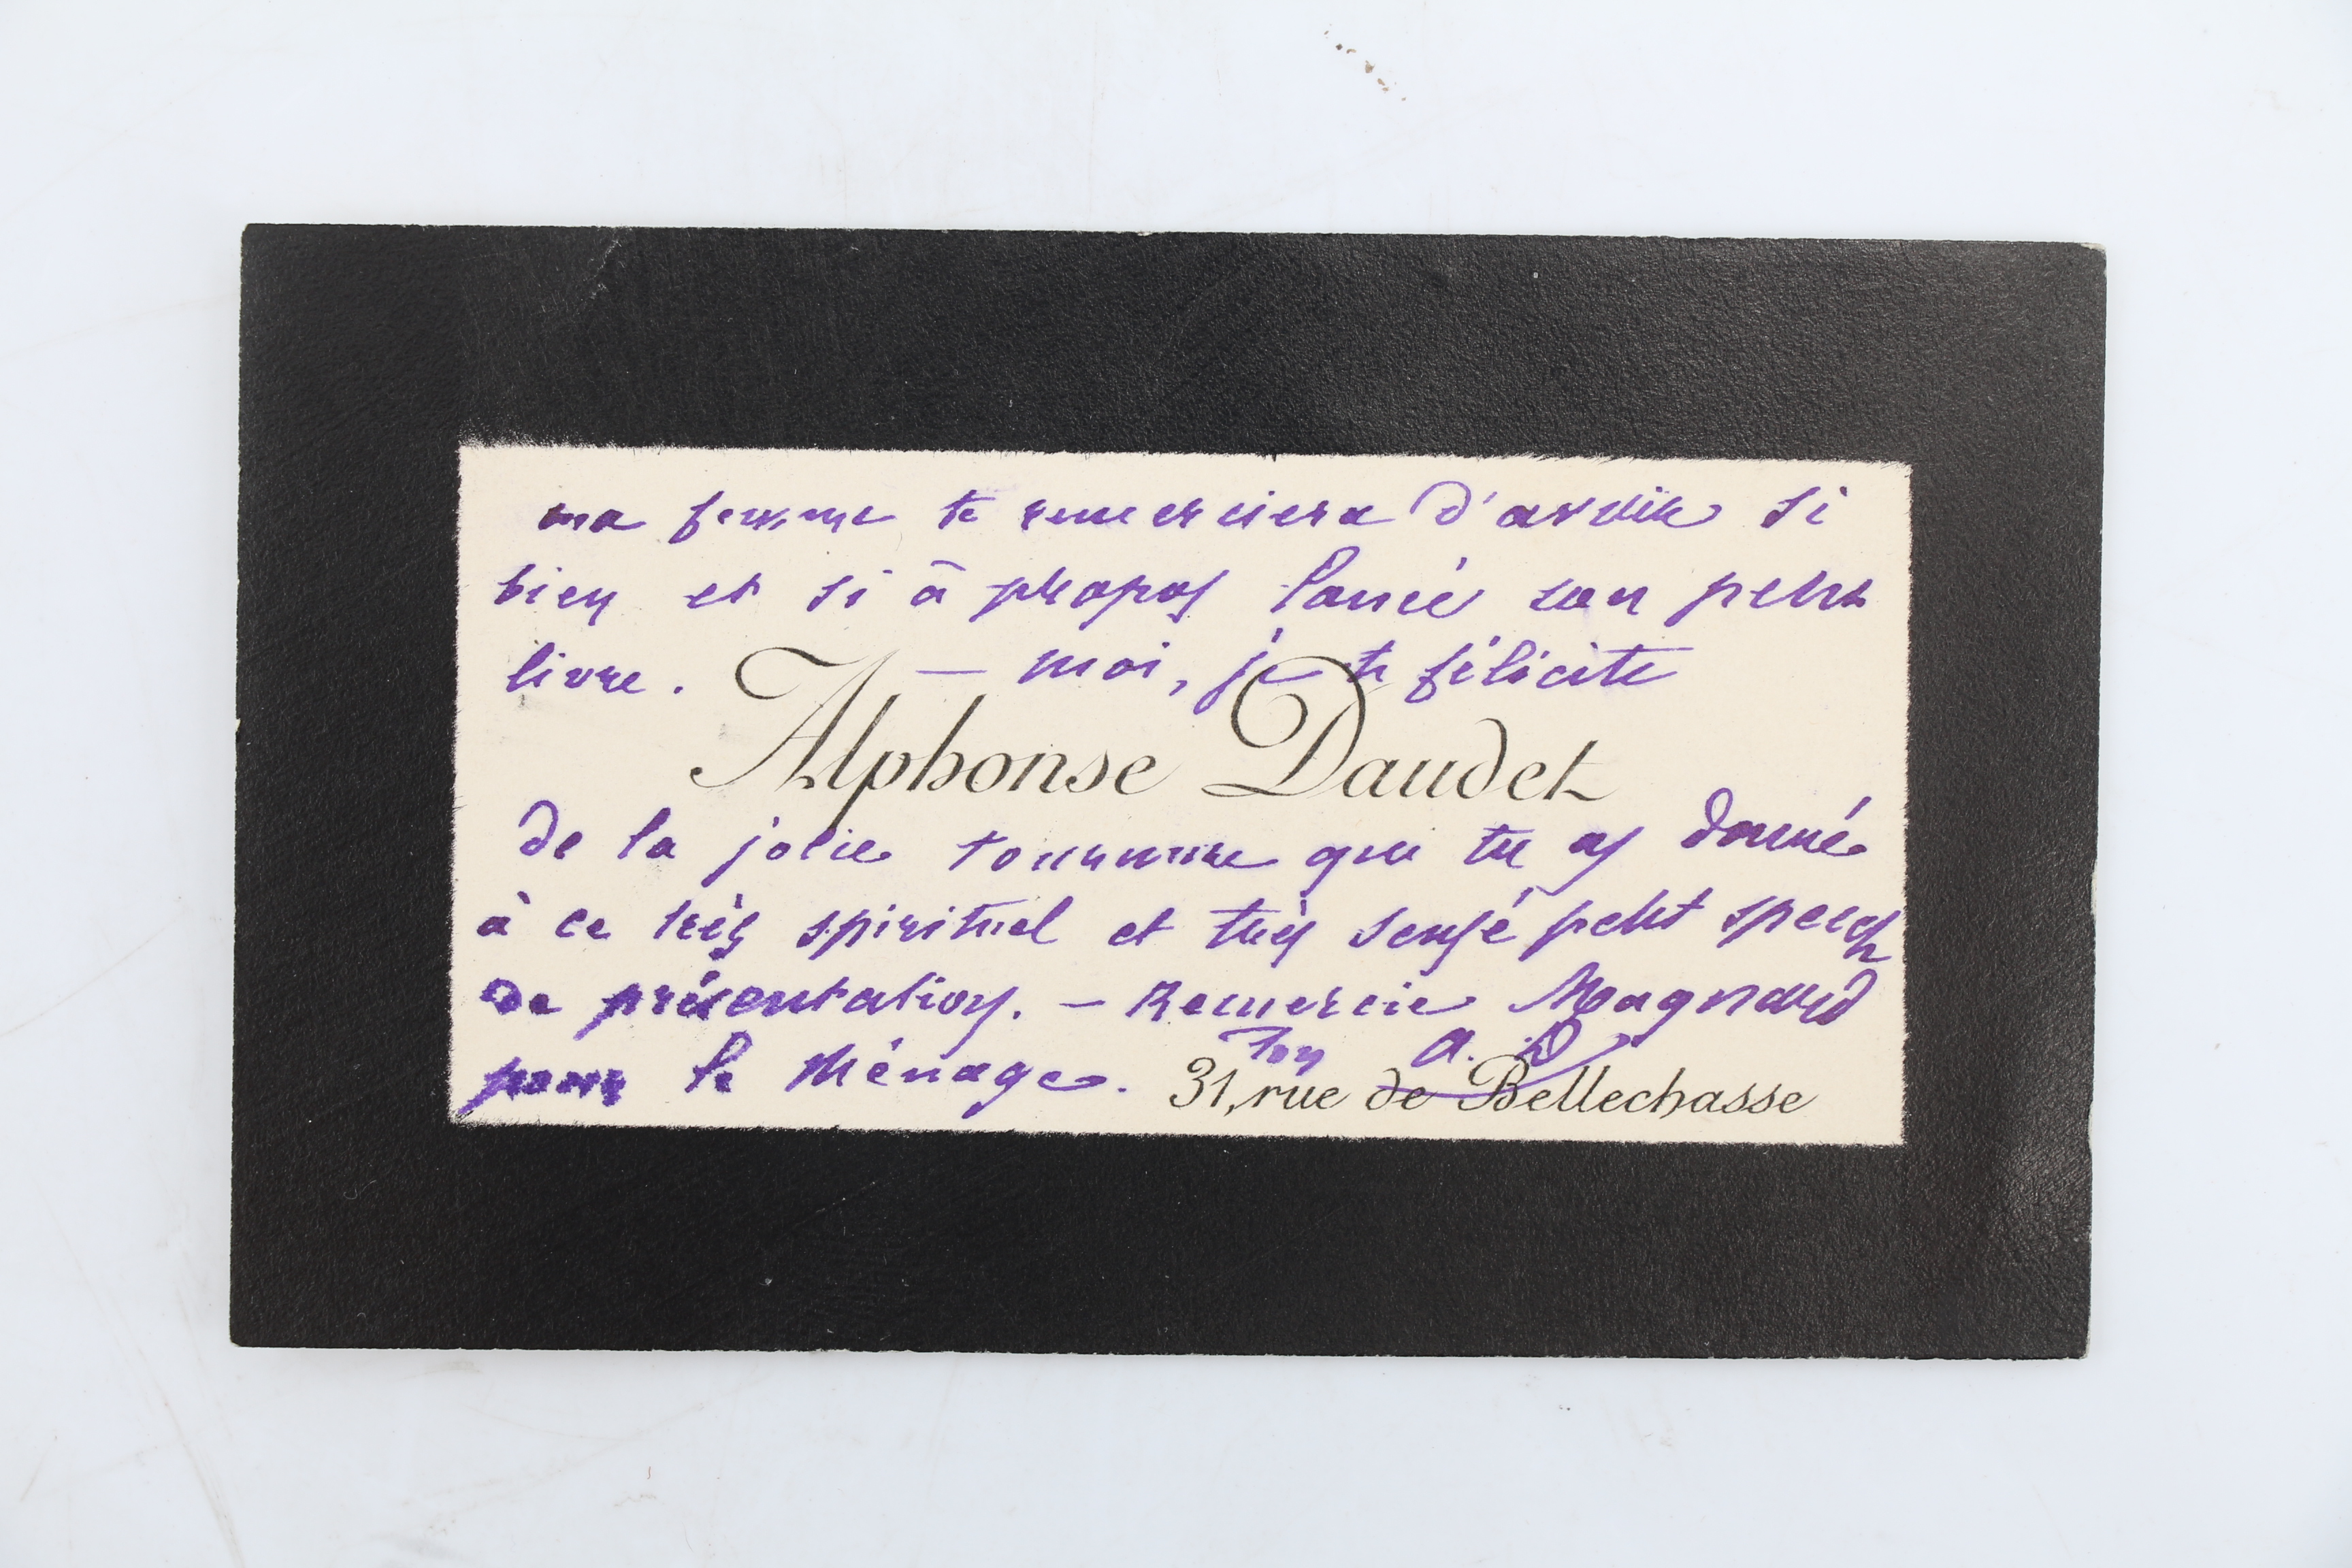 ma femme te remerciera d'avoir si
bien et si à propos lancé son petit
livre. — moi, je te félicite
Alphonse Daudet
de la jolie tournure que tu as donné
à ce très spirituel et très sensé petit speech
de présentation. — Remercie Magnard
pour le Ménage.
Ton A. D
31, rue de Bellechasse